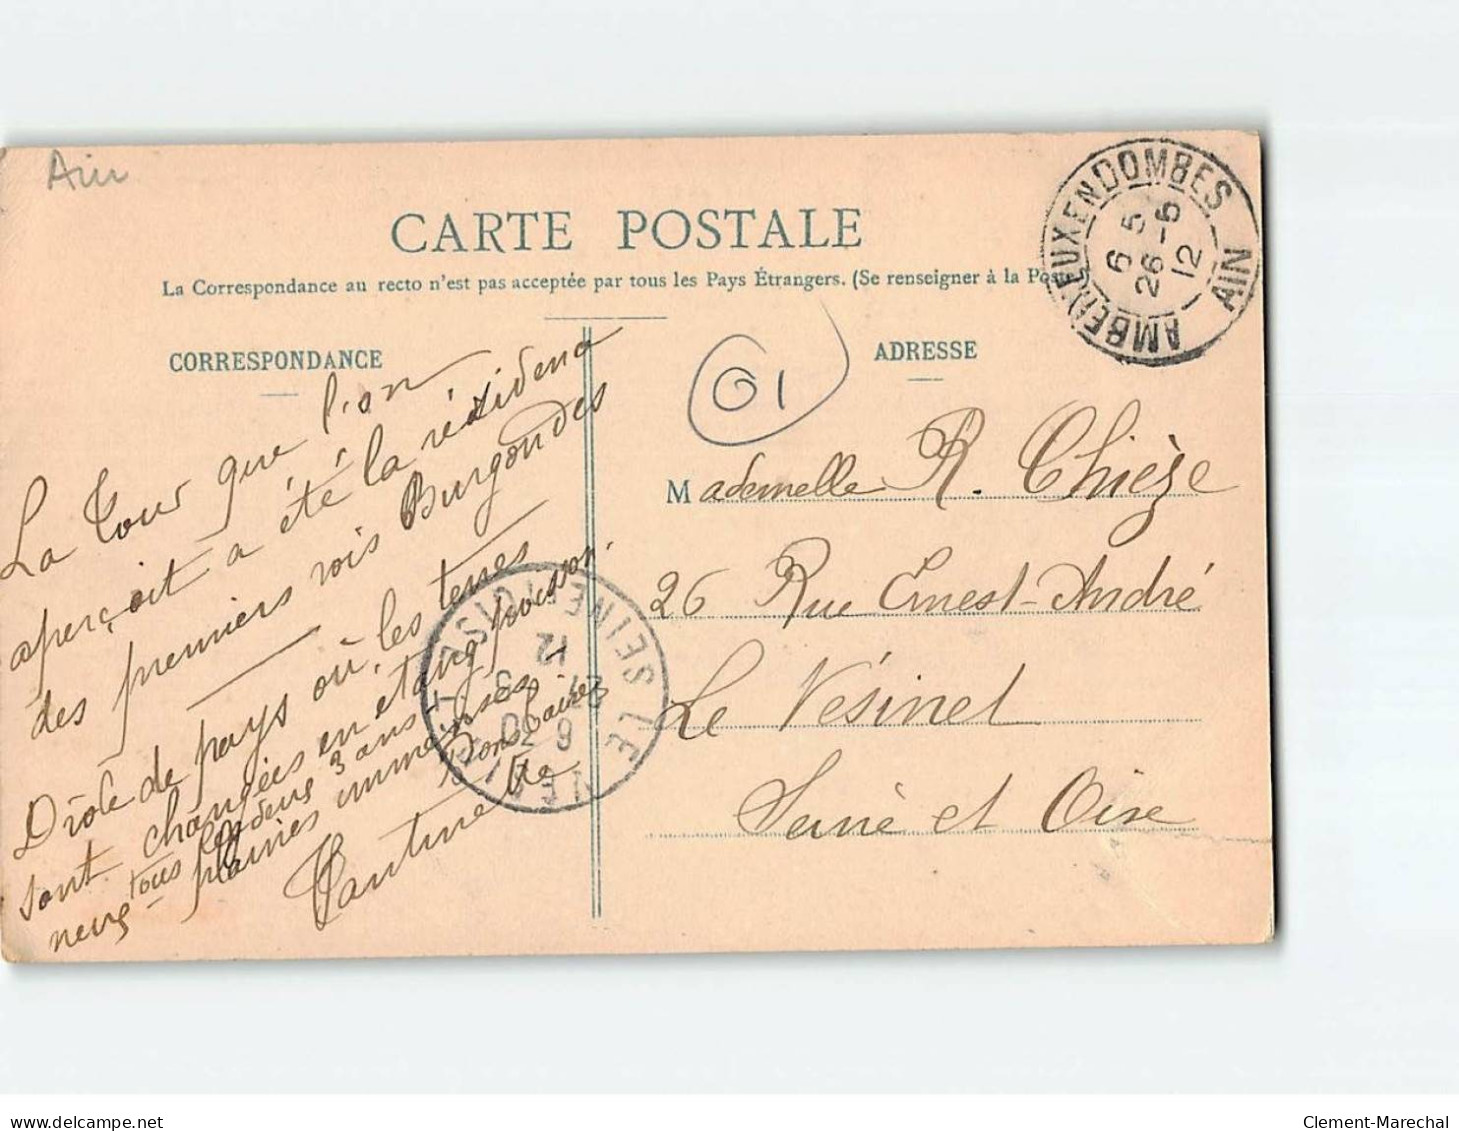 Ain
CARTE POSTALE
La Correspondance au recto n'est pas acceptée par tous les Pays Étrangers. (Se renseigner à la Poste
CORRESPONDANCE
La Tour que l'on
aperçoit a été la résidence
des premiers rois Burgondes
Drôle de pays où les terres
sont changées en étang poisson.
neux tous les deux 3 ans -
plaines immenses
Bons baisers
Tantinette
ADRESSE
01
Mademelle R. Chièze
26 Rue Ernest-André
Le Vésinet
Seine et Oise
AMBERIEUX EN DOMBES
AIN
6 5
26 - 5
12
LE VESINET SEINE ET OISE
6 30
27 - 5
12
delcampe.net
Clement-Marechal